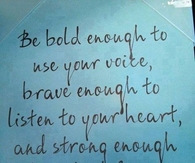 Be bold enough to
use your voice,
brave enough to
listen to your heart,
and strong enough